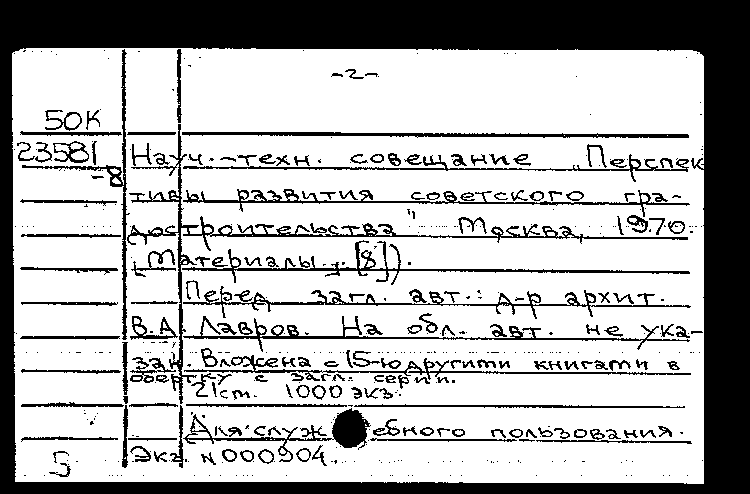 -2-
50К
23581 Науч.-техн. совещание „Перспек
-8
тивы развития советского гра-
достроительства" Москва, 1970.
[Материалы]. [8]).
Перед загл. авт.: д-р архит.
В.А. Лавров. На обл. авт. не ука-
зан. Вложена с 15-ю другими книгами в
обертку с загл. серии.
21см. 1000 экз.
Для служебного пользования.
5 Экз. №000904.